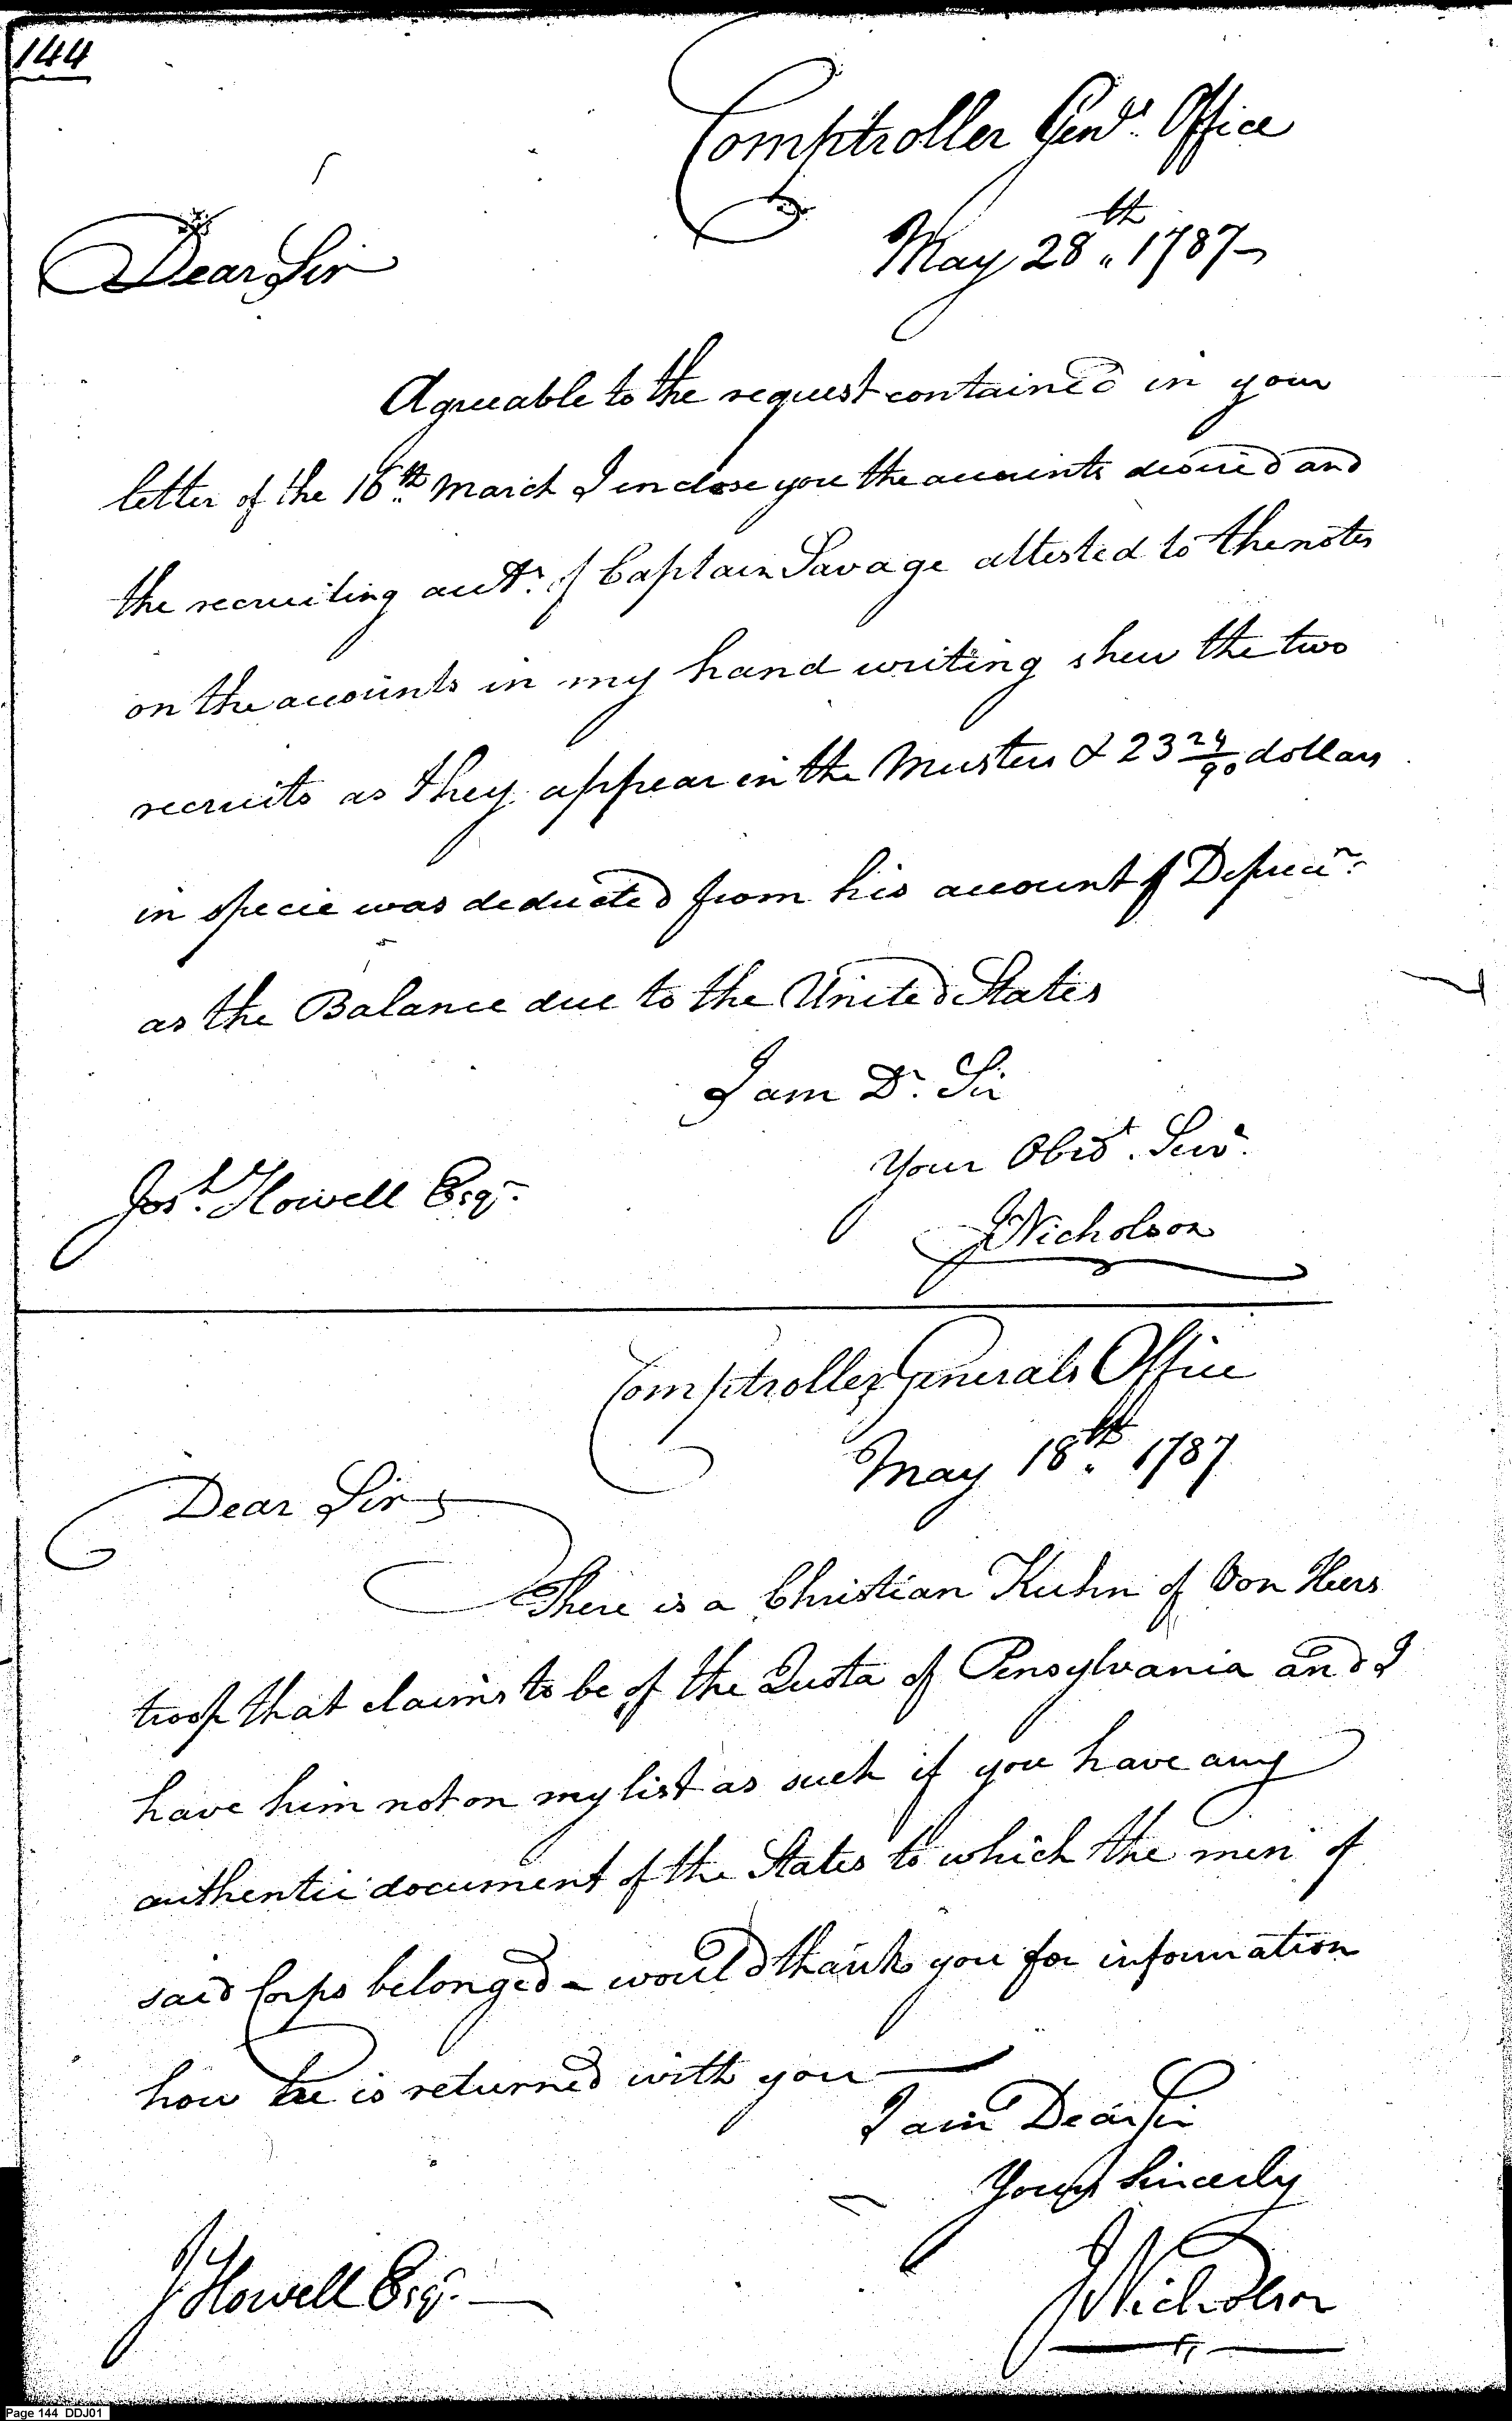 144
Comptroller Genls. Office
May 28th. 1787
Dear Sir
Agreeable to the request contained in your
letter of the 16th. March I inclose you the accounts desired and
the recruiting acct. of Captain Savage attested to the notes
on the accounts in my hand writing shew the two
recruits as they appear in the Musters & 23 24/90 dollars
in specie was deducted from his account of Depreci.n
as the Balance due to the United States
I am Dr. Sir
Your Obedt. Serv.
Jos.h Howell Esqr.
JNicholson
Comptroller Generals Office
May 18th. 1787
Dear Sir
There is a Christian Kuhn of Von Heers
troop that claims to be of the Quota of Pensylvania and I
have him not on my list as such if you have any
authentic document of the States to which the men of
said Corps belonged - would thank you for information
how he is returned with you
I am Dear Sir
Yours Sincerely
J Howell Esqr.
JNicholson
Page 144 DDJ01